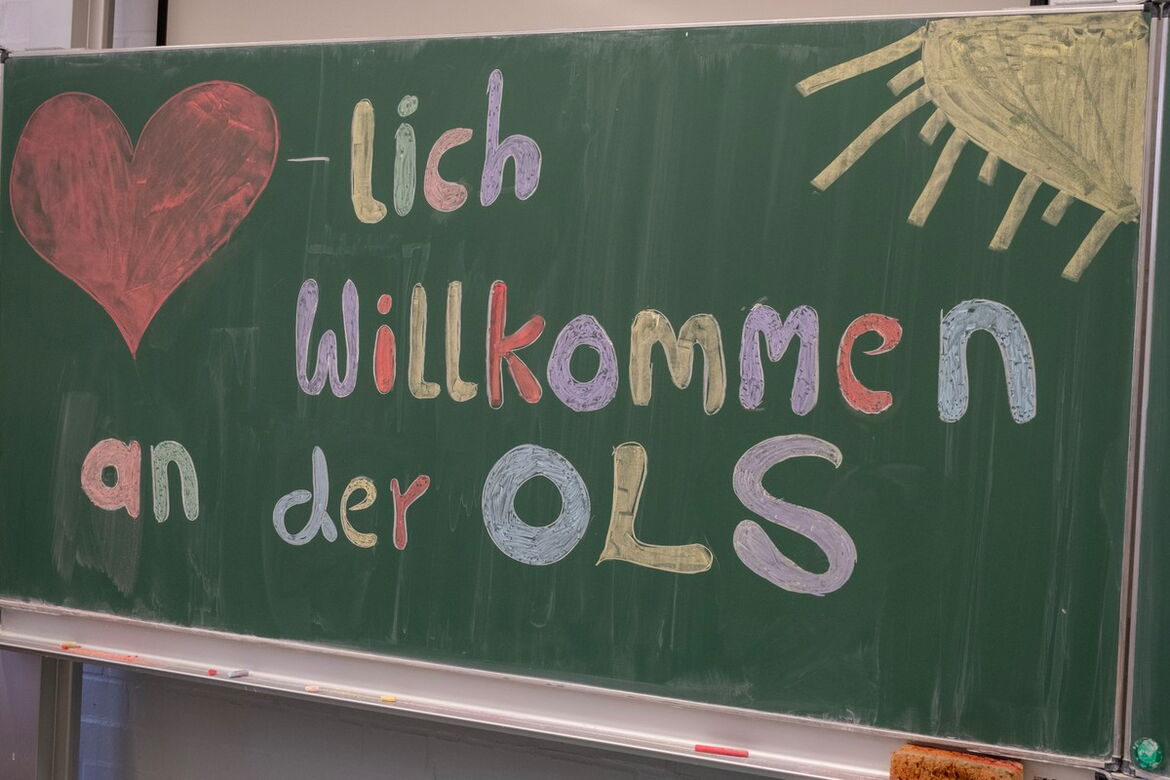 -lich
Willkommen
an der OLS